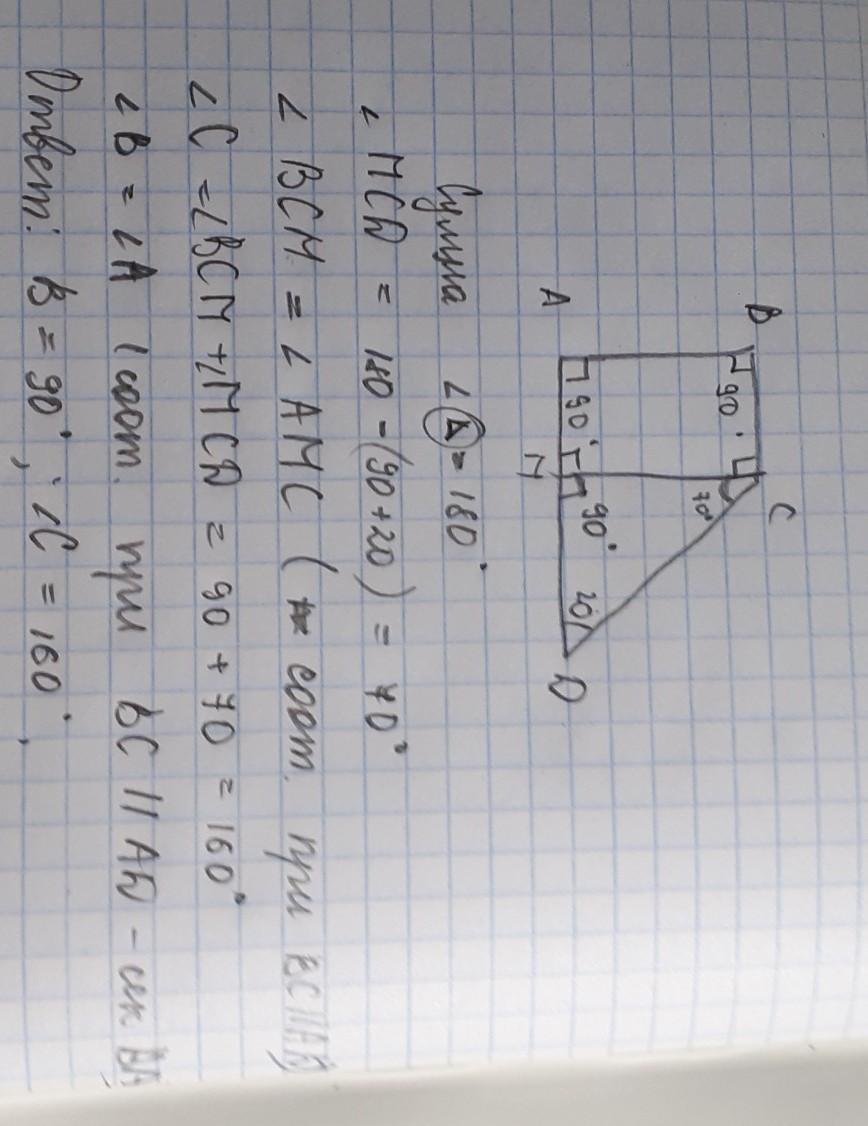 B
C
90°
70°
A
90°
M
90°
20
D
Сумма ∠A = 180°
∠ MCD = 180 - (90 + 20) = 70°
∠ BCM = ∠ AMC ( соот. при BC || AD)
∠C = ∠BCM + ∠MCD = 90 + 70 = 160°
∠B = ∠A (соот. при BC || AD - сек BA
Ответ: B = 90°, ∠C = 160°,